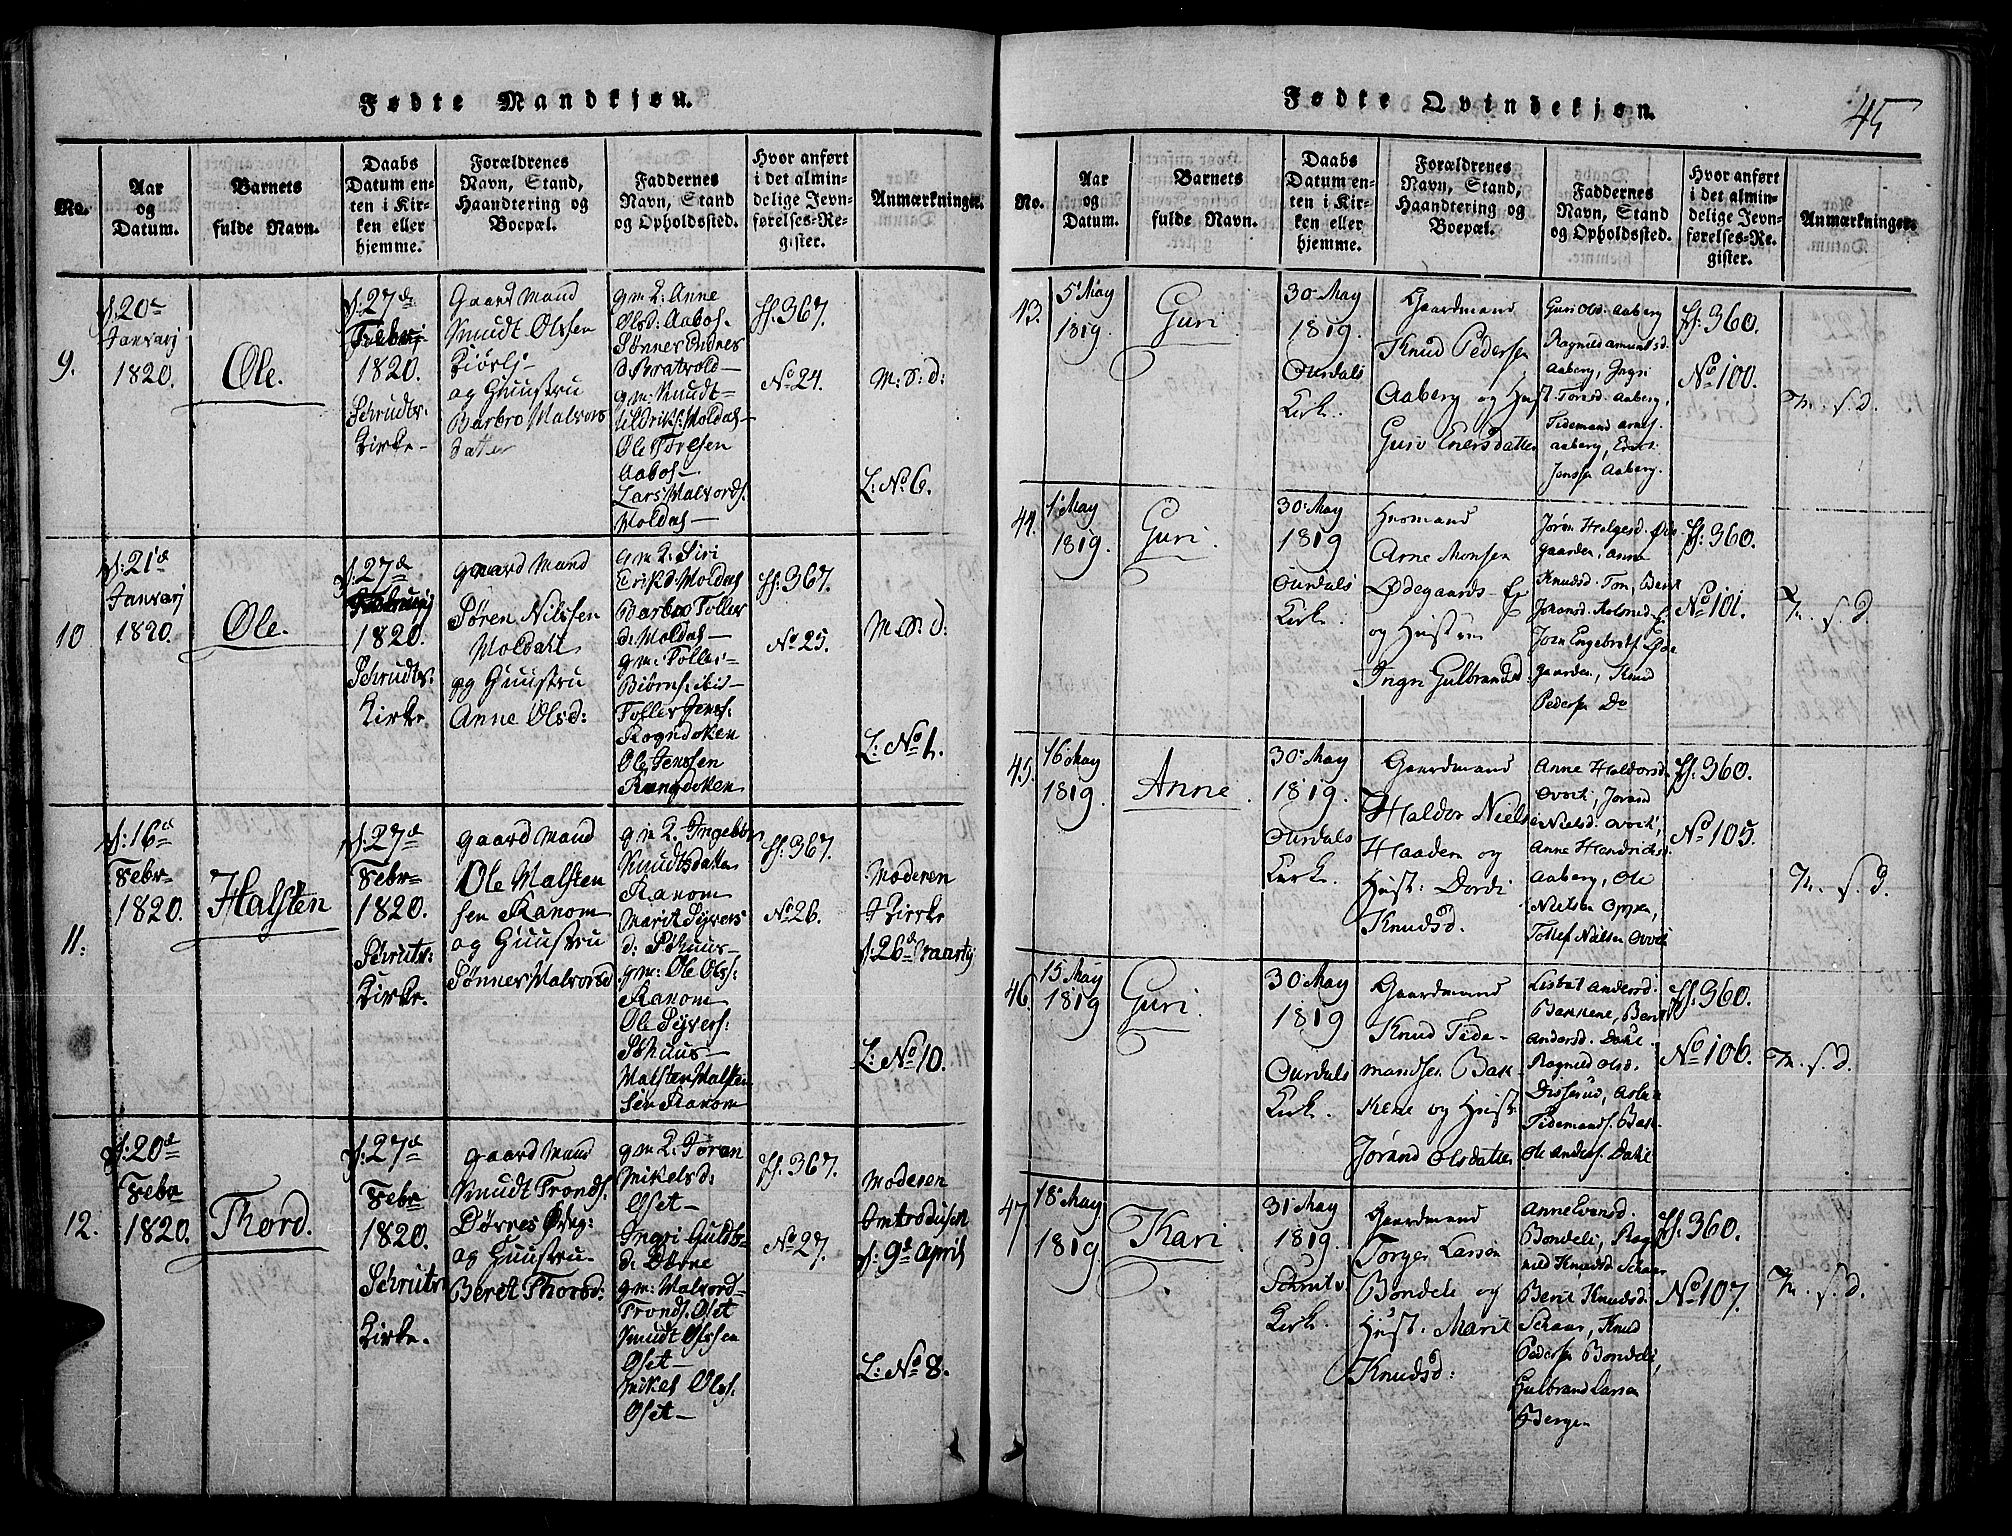 Fødte Mandkjøn.
No.
Aar
og
Datum.
Barnets
fulde Navn.
Daabs
Datum en-
ten i Kir-
ken eller
hjemme.
Forældrenes
Navn, Stand,
Haandtering og
Boepæl.
Faddernes
Navn, Stand
og Opholdssted.
Hvor anført
i det almin-
delige Jevn-
førelses-Re-
gister.
Anmærkninger.
9.
d: 20de
Januarj
1820.
Ole.
d: 27de
1820.
Schrudts-
Kirke-
Gaard Mand
Knudt Olssen
og Huustru
Barbro Halvors
datter
gm 2: Anne
Olsd: Aabos-
gm: Knudt-
Ole
Aabos-
Lars Halvords:
Moldas-
ff: 367.
No 24.
M: S: d:
L: No 6.
10
d: 21d
Januarj
1820.
Ole.
d: 27de
1820.
Schrudts-
Kirke.
gaard Mand
Søren Nilssen
og Huustru
Anne Olsd:
gm 2: Siri
Erikd: Moldas
Barbro Toller
d: Moldas-
gm: Toller-
Biørns: ibid-
Toller Jenss:
Rogndoken
Ole Jenssen
ff: 367.
No 25.
M: S: d:
L: No 1.
11.
d: 16d
Febr-
1820.
Halsten
d: 27d
Febr-
1820.
Schruts-
Kirke.
gaard Mand
Ole Halsten
sen Ranom
og Huustru
Sønnev Halvorsd
gm 2. Ingebor
Knudtsdatter
Ranom
Marit Syvers
d:
gm: Ole Olss:
Ranom
Ole Syvers:
Halsten Halsten
sen Ranom
ff: 367.
No 26.
Moderen
i Kirke
d: 26d Martj
L: No 10.
12.
d: 20d
Febr
1820.
Thord.
d: 27d
Febr
1820.
Schruts
Kirke.
gaard Mand
Knudt Tronds:
og Huustru
Beret Thordsd:
gm 2. Jøran
Mikelsd:
Oset-
Ingri Gulds-
d: Dørre
gm: Halvord
Tronds. Oset
Knudt Olssen
Oset-
Mikel Olss.
Oset-
ff: 367.
No 27.
Moderen
Introdusen
d: 9d April
L: No 8.
45
Fødte Qvindekjøn.
No.
Aar
og
Datum.
Barnets
fulde Navn.
Daabs
Datum en-
ten i Kir-
ken eller
hjemme.
Forældrenes
Navn, Stand,
Haandtering og
Boepæl.
Faddernes
Navn, Stand
og Opholdssted.
Hvor anført
i det almin-
delige Jevn-
førelses-Re-
gister.
Anmærkninger.
43.
5 May
1819.
Guri
30 May
1819.
Ourdals
Kirk.
Gaardmand
Knud Pedersen
Aaberg og Hust
Guro Enersdatter
Guri Ols. Aaberg
Ragnild Amunds d.
Aaberg, Ingri
Torsd. Aaberg,
Tidemand Arnes.
Aaberg, Erick
Jonssen Aaberg.
ff: 360.
No 100.
M. S. d.
44.
1 May
1819.
Guri.
30 May
1819
Ourdals
Kirk.
Husmand
Arne Monsen
Ødegaards-Ej
og Hustrue
Ingri Gulbrandsd.
Jøren Helgesd. Øde
gaarden, Anne
Knudsd. Ton, Berit
Johansd.
Joen Engebretsf. Øde
gaarden, Knud
Pedersen Do
ff: 360.
No 101.
M. S. d.
45.
16 May
1819.
Anne.
30 May
1819.
Ourdals
Kirk.
Gaardmand
Haldor Niels
Haaden og
Hust: Dordi
Knudsd.
Anne Haldorsd.
Nielsd.
Anne Hendricksd.
Aaberg, Ole
Nielsen
Tollef Nielsen
ff: 360.
No 105.
M. S. d.
46
15 May
1819
Guri.
30 May
1819
Ourdals
Kirk.
Gaardmand
Knud Tide-
mandsen Bak-
kene og Hust
Jørand Olsdatter
Lisbet Andersd.
Bakkene, Berit
Andersd. Dahl.
Ragnild Olsd.
Disserud,
Tidemands. Bak-
Ole Anders. Dahl
ff: 360.
No 106.
M. S. d.
47
18 May
1819
Kari.
31 May
1819.
Schrutv.
Kirk.
Gaardmand
Torger Larsen
Bondeli og
Hust: Marit
Knudsd:
Anne Evensd.
Bondeli, Rag
nild Knudsd Schaar
Berit Knudsd.
Schaar, Knud
Pedersen Bondeli,
Gulbrand Larsen
Bergen
ff: 360.
No 107.
M. S. d.